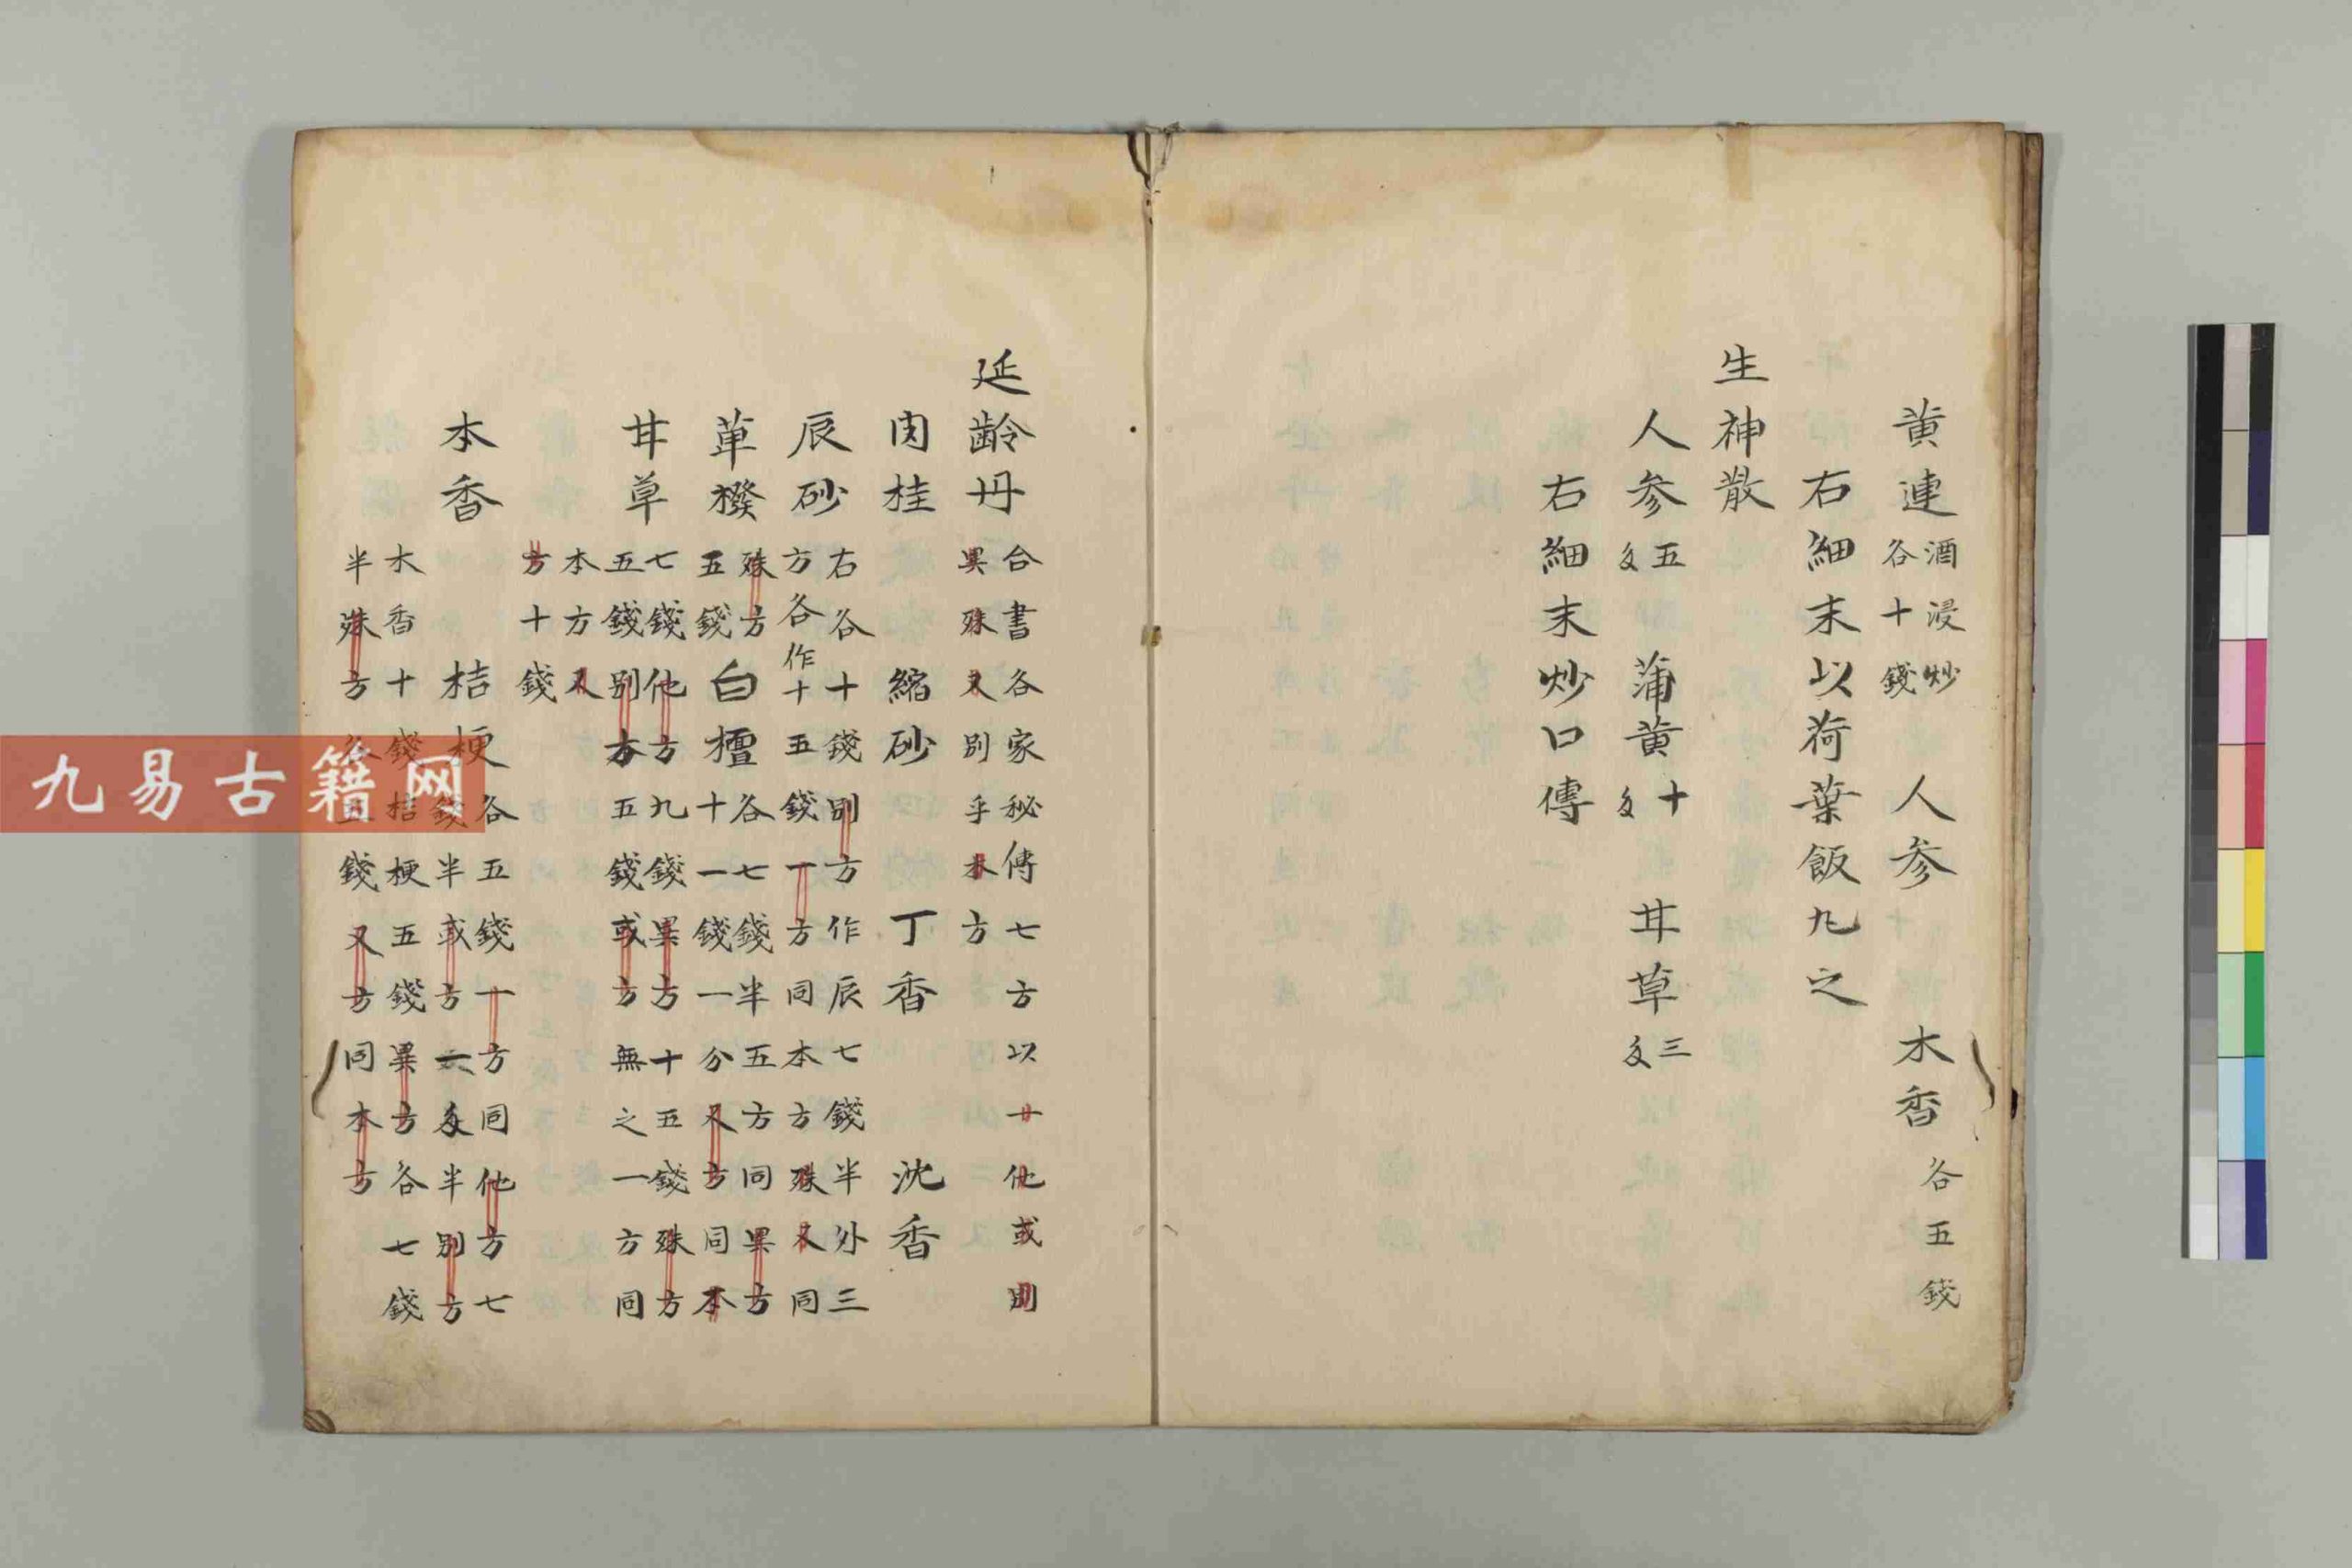 黄連 酒浸炒 各十錢 人参 木香 各五錢
右細末以荷葉飯丸之
生神散
人参 五匁 蒲黄 十匁 甘草 三匁
右細末炒口傳
延齡丹 合書各家秘傳七方以一他或別 異殊又別乎本方
肉桂 縮砂 丁香 沈香
辰砂 右各十錢別方作辰七錢半外三 方各作十五錢一方同本方殊又同
蓽橃 殊方五錢 白檀 各七錢半五方同異方 十一錢一分又方同本
甘草 七錢他方九錢異方十五錢殊方 五錢別方五錢或方無之一方同
本方又 方十錢
木香 桔梗 各五錢一方同他方七 錢半或方六匁半別方
木香十錢桔梗五錢異方各七錢 半殊方各五錢又方同本方
九易古籍网